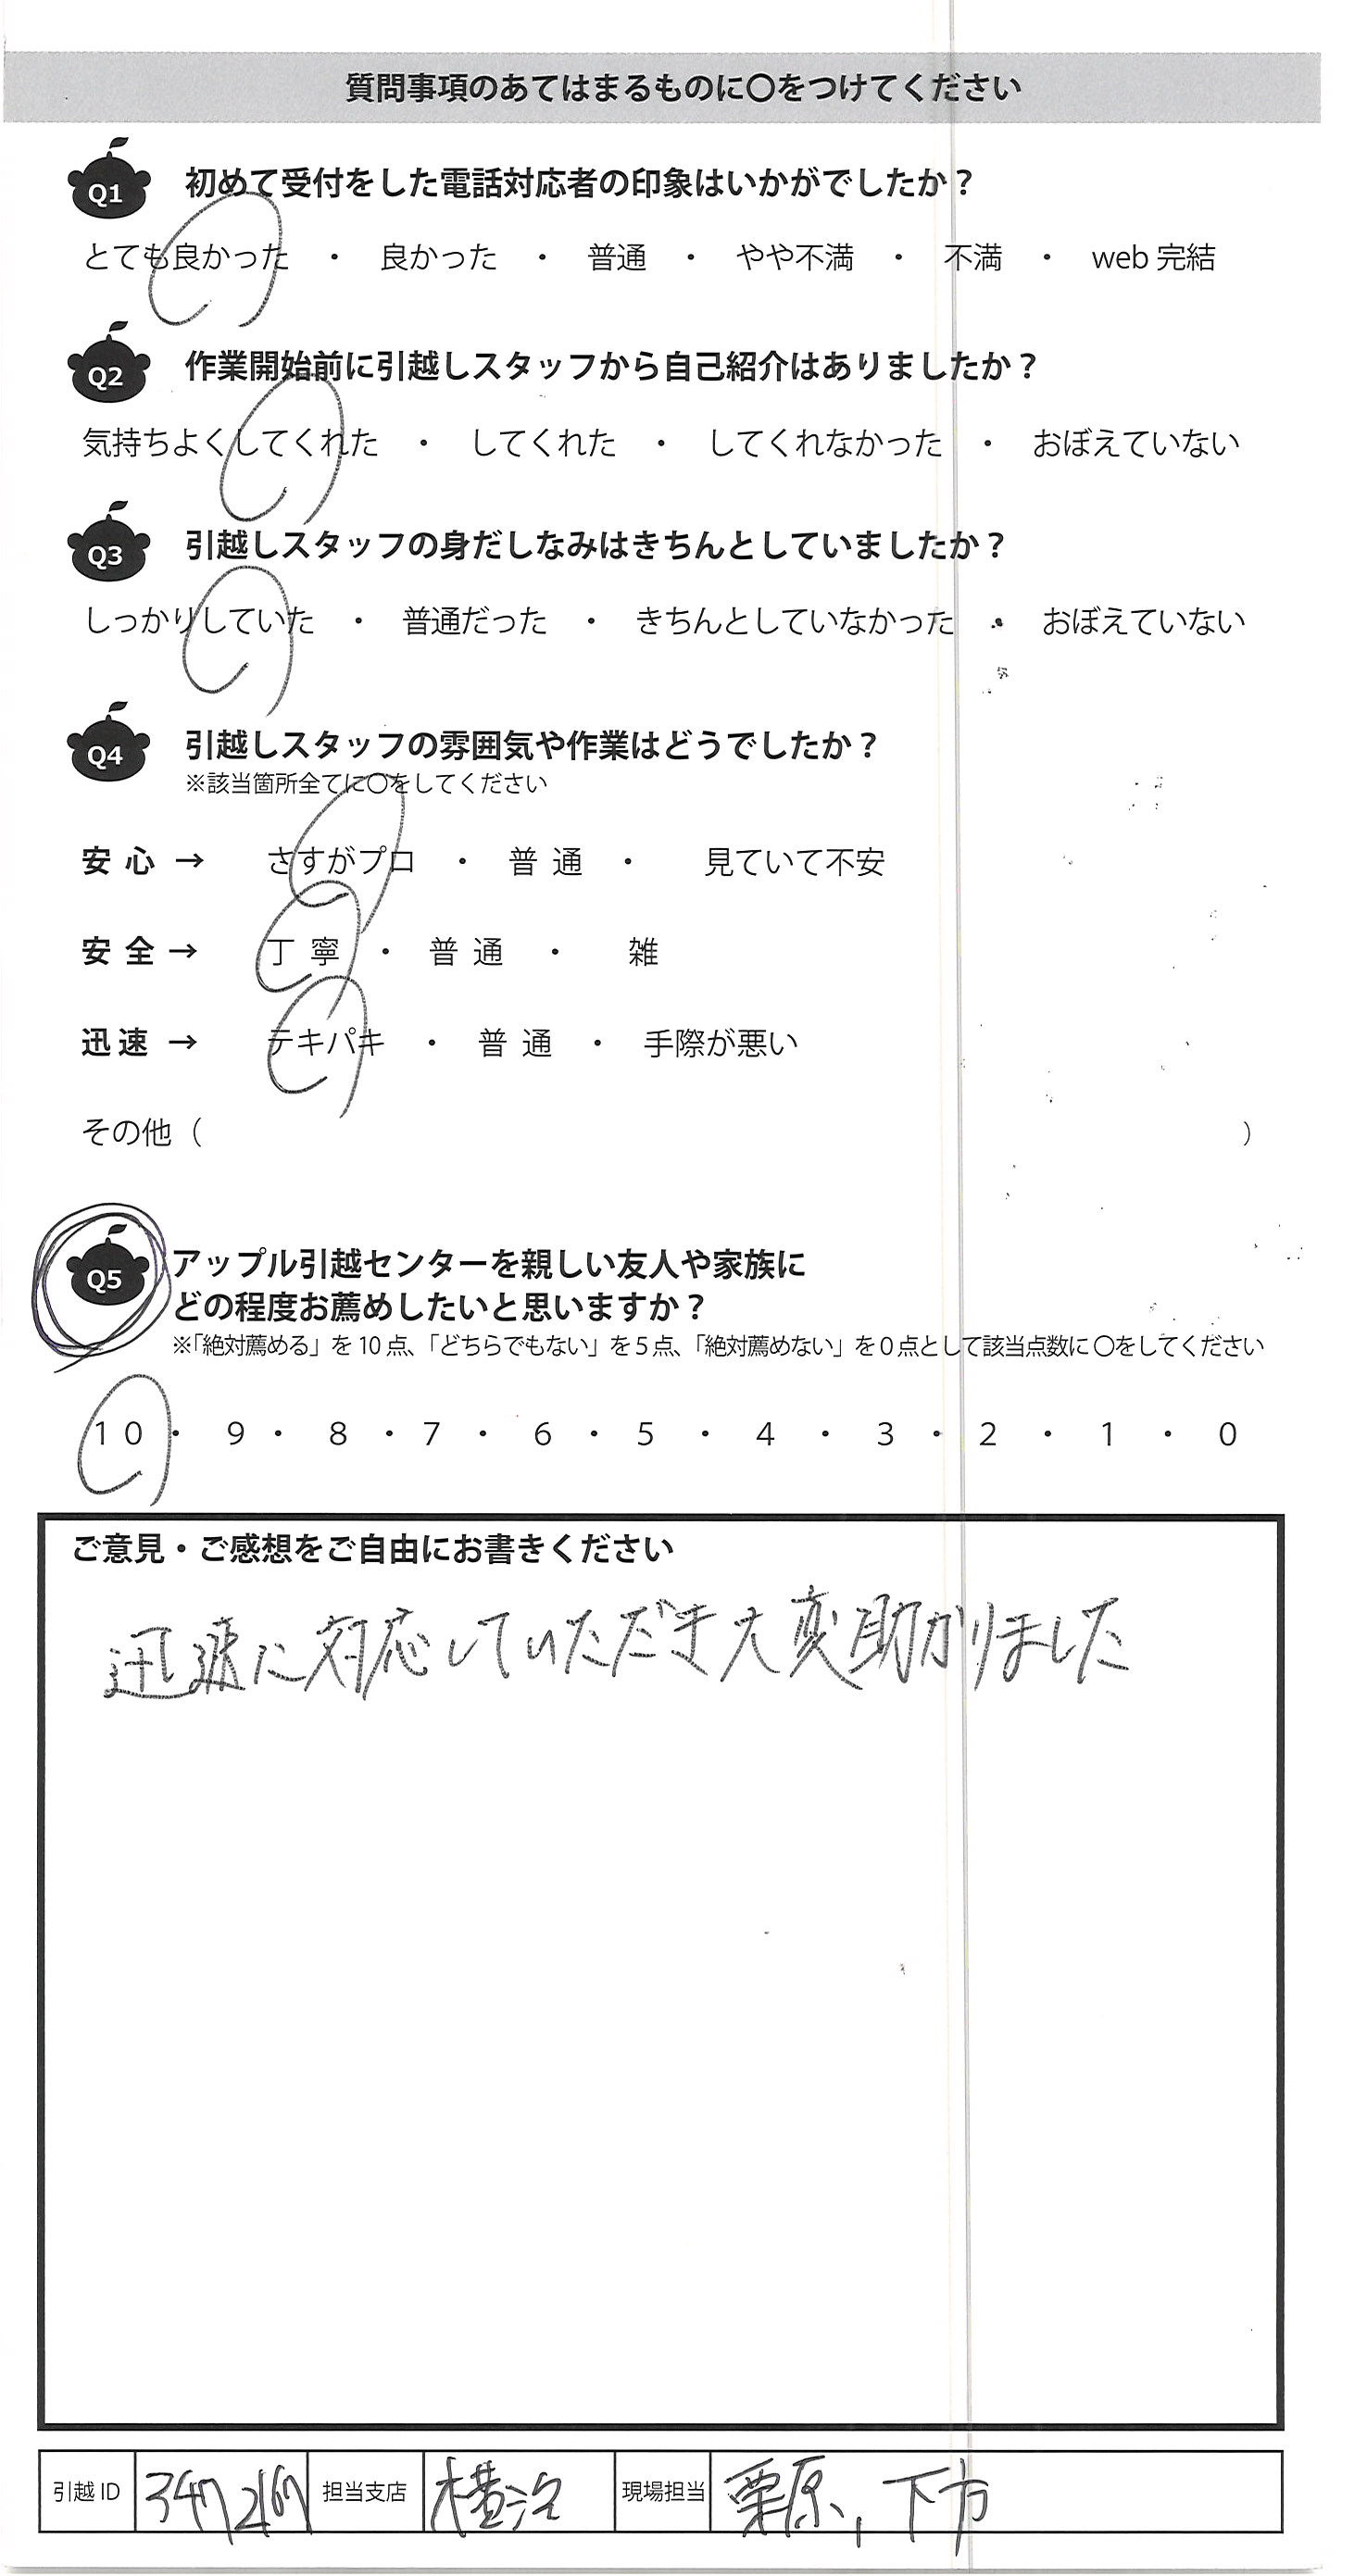 質問事項のあてはまるものに〇をつけてください
Q1 初めて受付をした電話対応者の印象はいかがでしたか？
とても良かった ・ 良かった ・ 普通 ・ やや不満 ・ 不満 ・ web 完結
Q2 作業開始前に引越しスタッフから自己紹介はありましたか？
気持ちよくしてくれた ・ してくれた ・ してくれなかった ・ おぼえていない
Q3 引越しスタッフの身だしなみはきちんとしていましたか？
しっかりしていた ・ 普通だった ・ きちんとしていなかった ・ おぼえていない
Q4 引越しスタッフの雰囲気や作業はどうでしたか？
※該当箇所全てに〇をしてください
安心 → さすがプロ ・ 普通 ・ 見ていて不安
安全 → 丁寧 ・ 普通 ・ 雑
迅速 → テキパキ ・ 普通 ・ 手際が悪い
その他（ ）
Q5 アップル引越センターを親しい友人や家族に
どの程度お薦めしたいと思いますか？
※「絶対薦める」を 10 点、「どちらでもない」を 5 点、「絶対薦めない」を 0 点として該当点数に 〇をしてください
10 ・ 9 ・ 8 ・ 7 ・ 6 ・ 5 ・ 4 ・ 3 ・ 2 ・ 1 ・ 0
ご意見・ご感想をご自由にお書きください
迅速に対応していただき大変助かりました
引越 ID 347267 担当支店 現場担当 栗原、下方